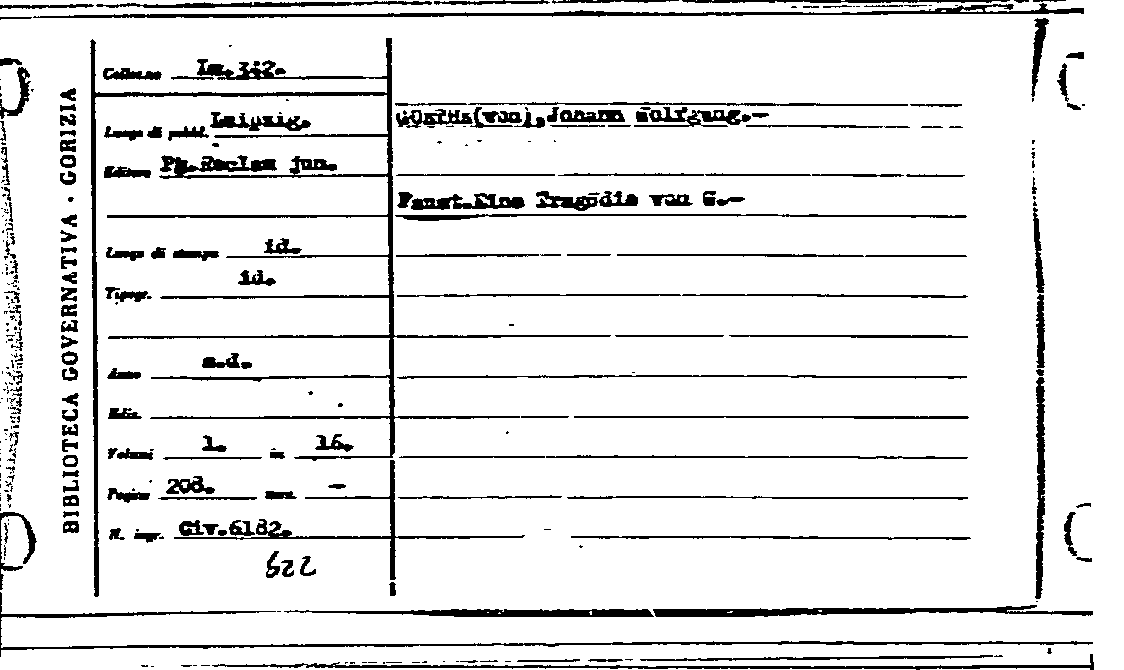 BIBLIOTECA GOVERNATIVA · GORIZIA
Collocaz.
Luogo di pubbl. Leipzig.
Editore Ph.Reclam jun.
Luogo di stampa id.
Tipogr. id.
Anno s.d.
Ediz.
Volumi 1. in 16.
Pagine 208. num. —
N. ingr. Giv.6182.
522
GOETHE(von),Johann Wolfgang.—
Faust.Eine Tragödie von G.—